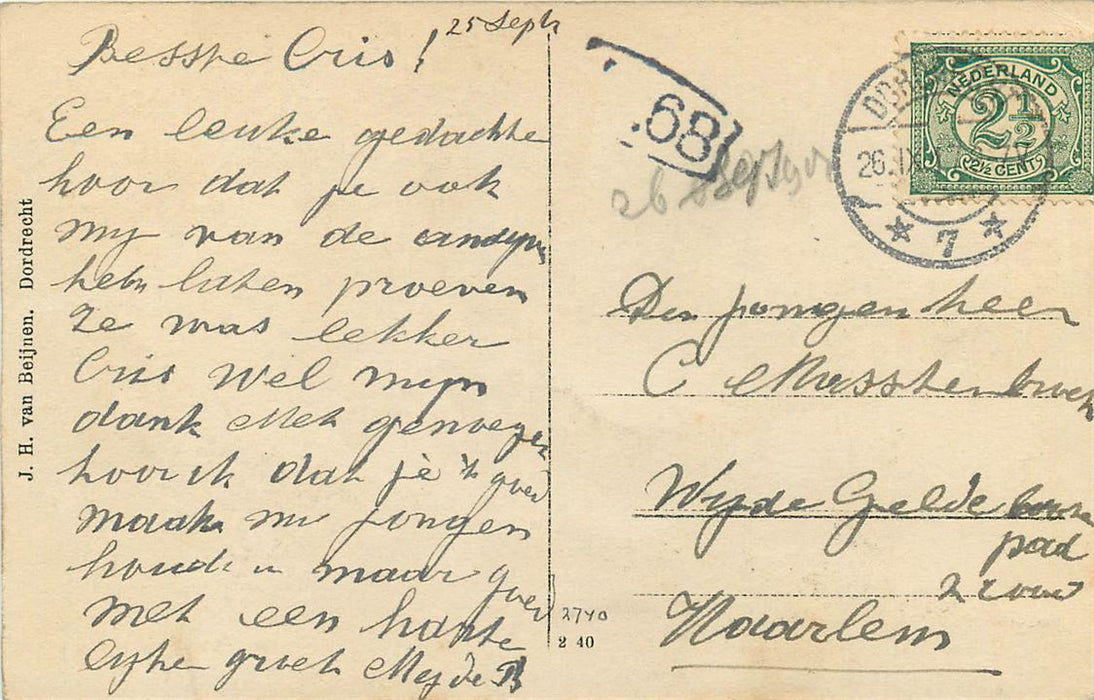 25 Sept
Besste Cris!
Een leuke gedachte
hoor dat je ook
my van de andyvi
hebt laten proeven
Ze was lekker
Cris wel mijn
dank Met genoegen
hoor ik dat je 't goed
maakt nu jongen
houd u maar goed
met een harte
lyke groet Meyde B
J. H. van Beijnen. Dordrecht
68
26 Sept
NEDERLAND
2½
2½ CENT
26.IX
7
Den jongen heer
C Masstenbroek
Wyde Geldeloose
pad
2 rood
Haarlem
2740
2 40